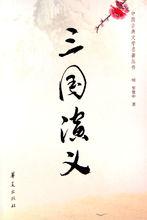 中国古典文学名著丛书
明 罗贯中 著
三国演义
华夏出版社